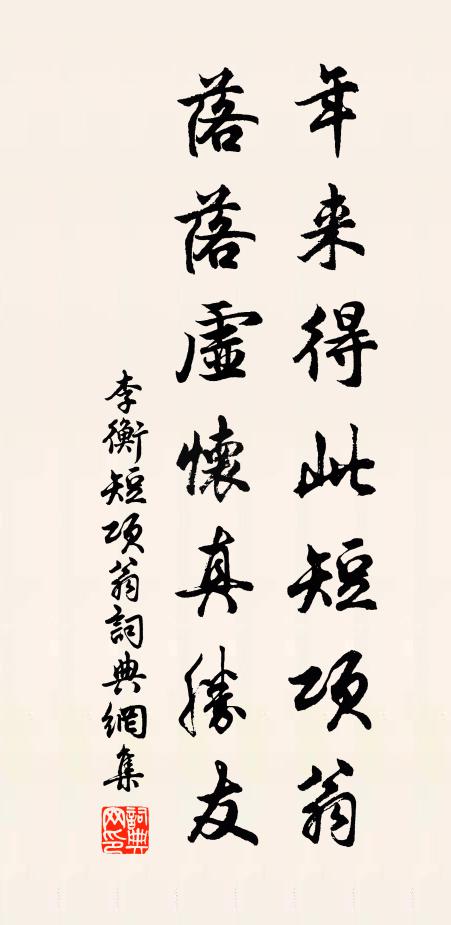 年来得此短项翁
落落虛懷真勝友
李衡短项翁詞典網集
詞典网印